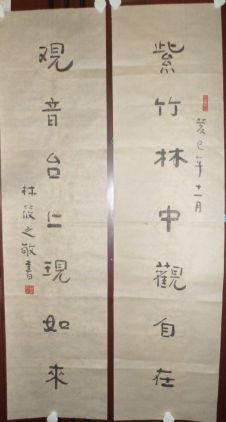 紫竹林中觀自在
癸巳年十一月
观音台上現如來
林筱之敬書